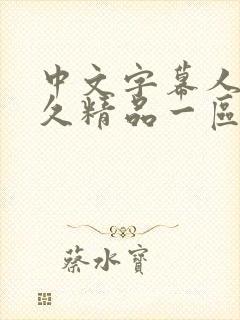 中文字幕人
久精品一區
蔡水寶